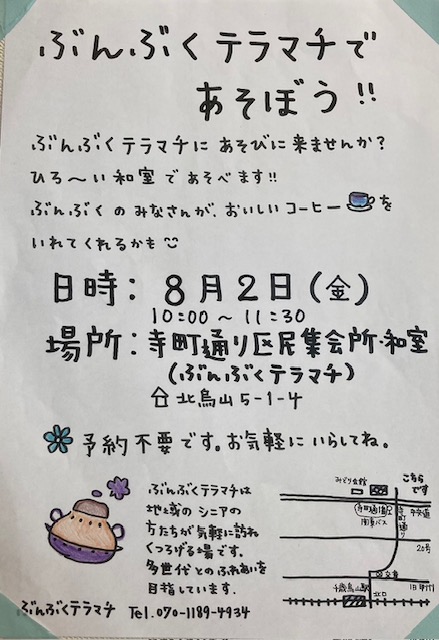 ぶんぶくテラマチで
あそぼう!!
ぶんぶくテラマチに あそびに来ませんか?
ひろ〜い和室であそべます!!
ぶんぶくのみなさんが、おいしいコーヒーを
いれてくれるかも
日時: 8月2日(金)
10:00〜11:30
場所: 寺町通り区民集会所・和室
(ぶんぶくテラマチ)
北烏山5-1-4
予約不要です。お気軽にいらしてね。
ぶんぶくテラマチは
地域のシニアの
方たちが気軽に訪れ
くつろげる場です。
多世代とのふれあいを
目指しています。
ぶんぶくテラマチ Tel.070-1189-4934
みどり会館
こちら
です
寺町通り
関東バス
寺町通り
中央道
20号
交番
千歳烏山駅
北口
旧甲州